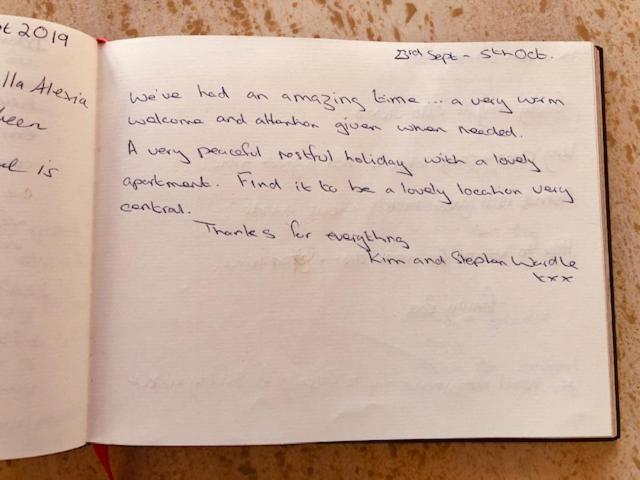 t 2019
lla Alexia
been
is
23rd Sept - 5th Oct.
We've had an amazing time ... a very warm
welcome and attention given when needed.
A very peaceful restful holiday with a lovely
apartment. Find it to be a lovely location very
central.
Thanks for everything
Kim and Stephen Wardle
xxx